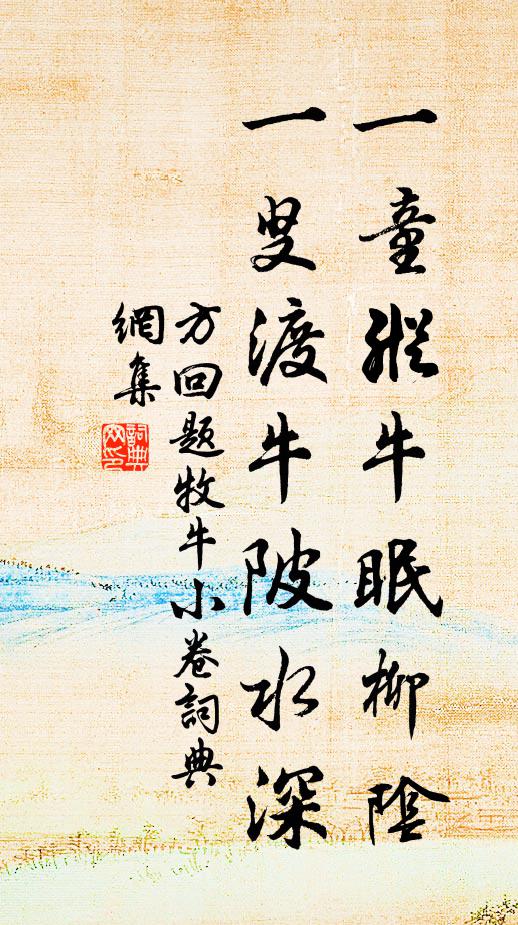 一童縱牛眠柳陰
一叟渡牛陂水深
方回題牧牛小卷詞典
網集
詞典